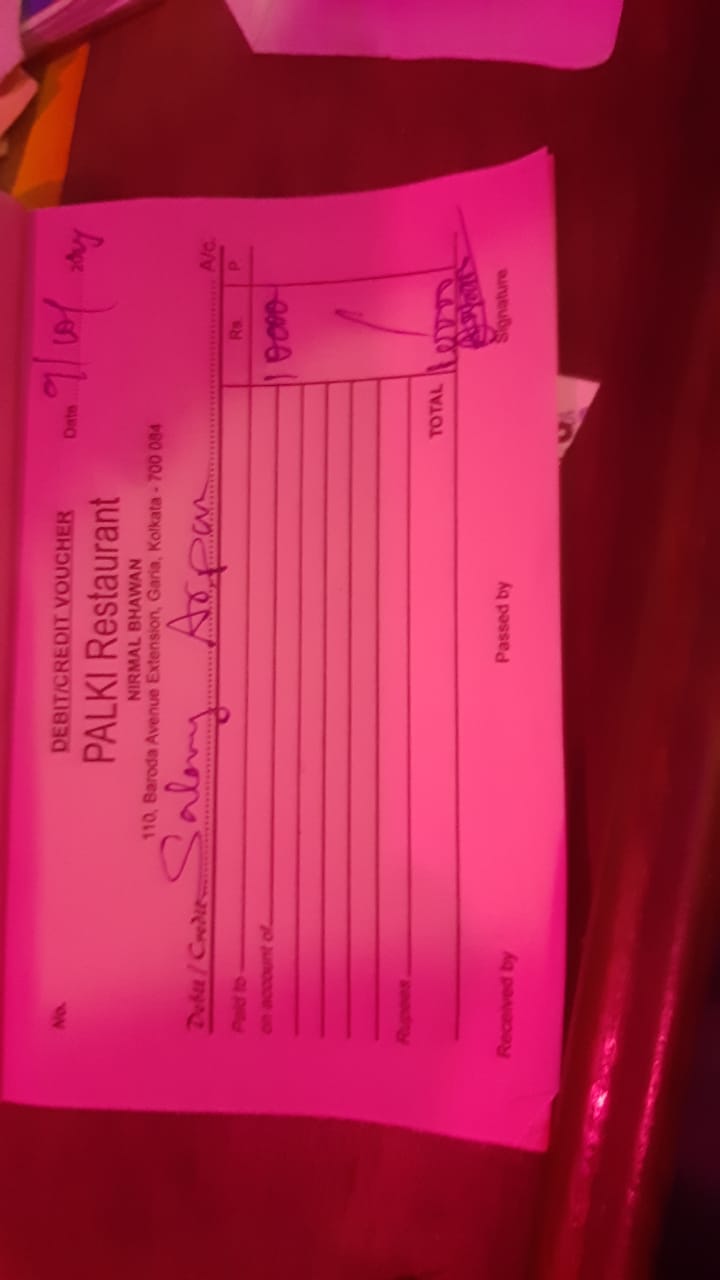 No.
DEBIT/CREDIT VOUCHER
PALKI Restaurant
NIRMAL BHAWAN
110, Baroda Avenue Extension, Garia, Kolkata - 700 084
Date 9/10/
Debit / Credit Salary Arpan A/c.
Paid to Rs. P
on account of 10000
Rupees TOTAL
Received by Passed by Signature